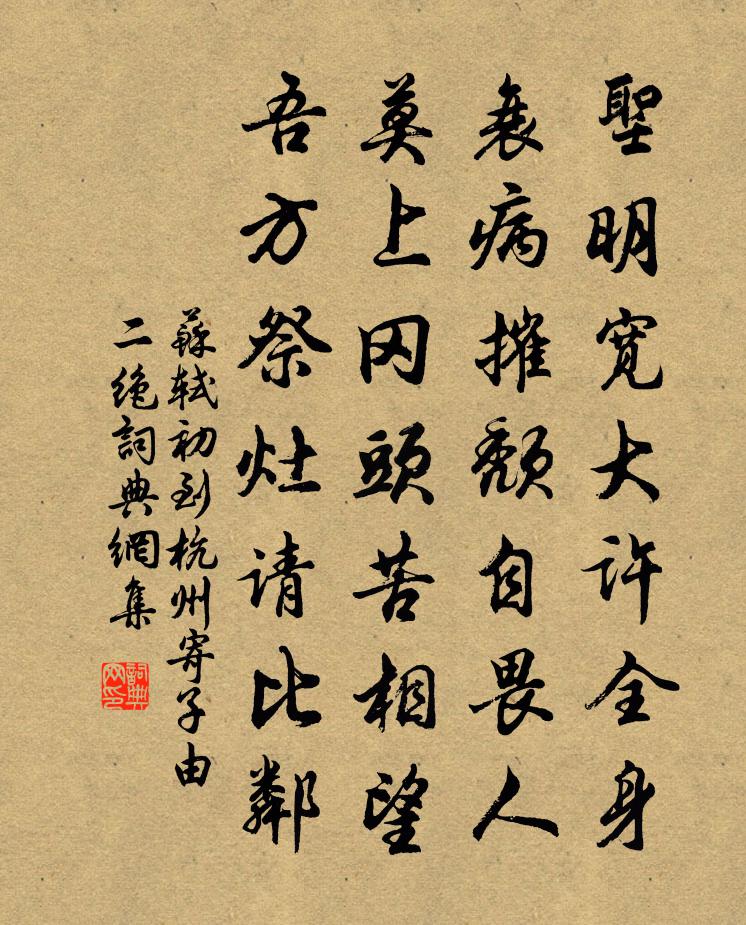 聖明寬大許全身
衰病摧頹自畏人
莫上冈頭苦相望
吾方祭灶请比鄰
蘇軾初到杭州寄子由
二絶詞典網集
詞典網印